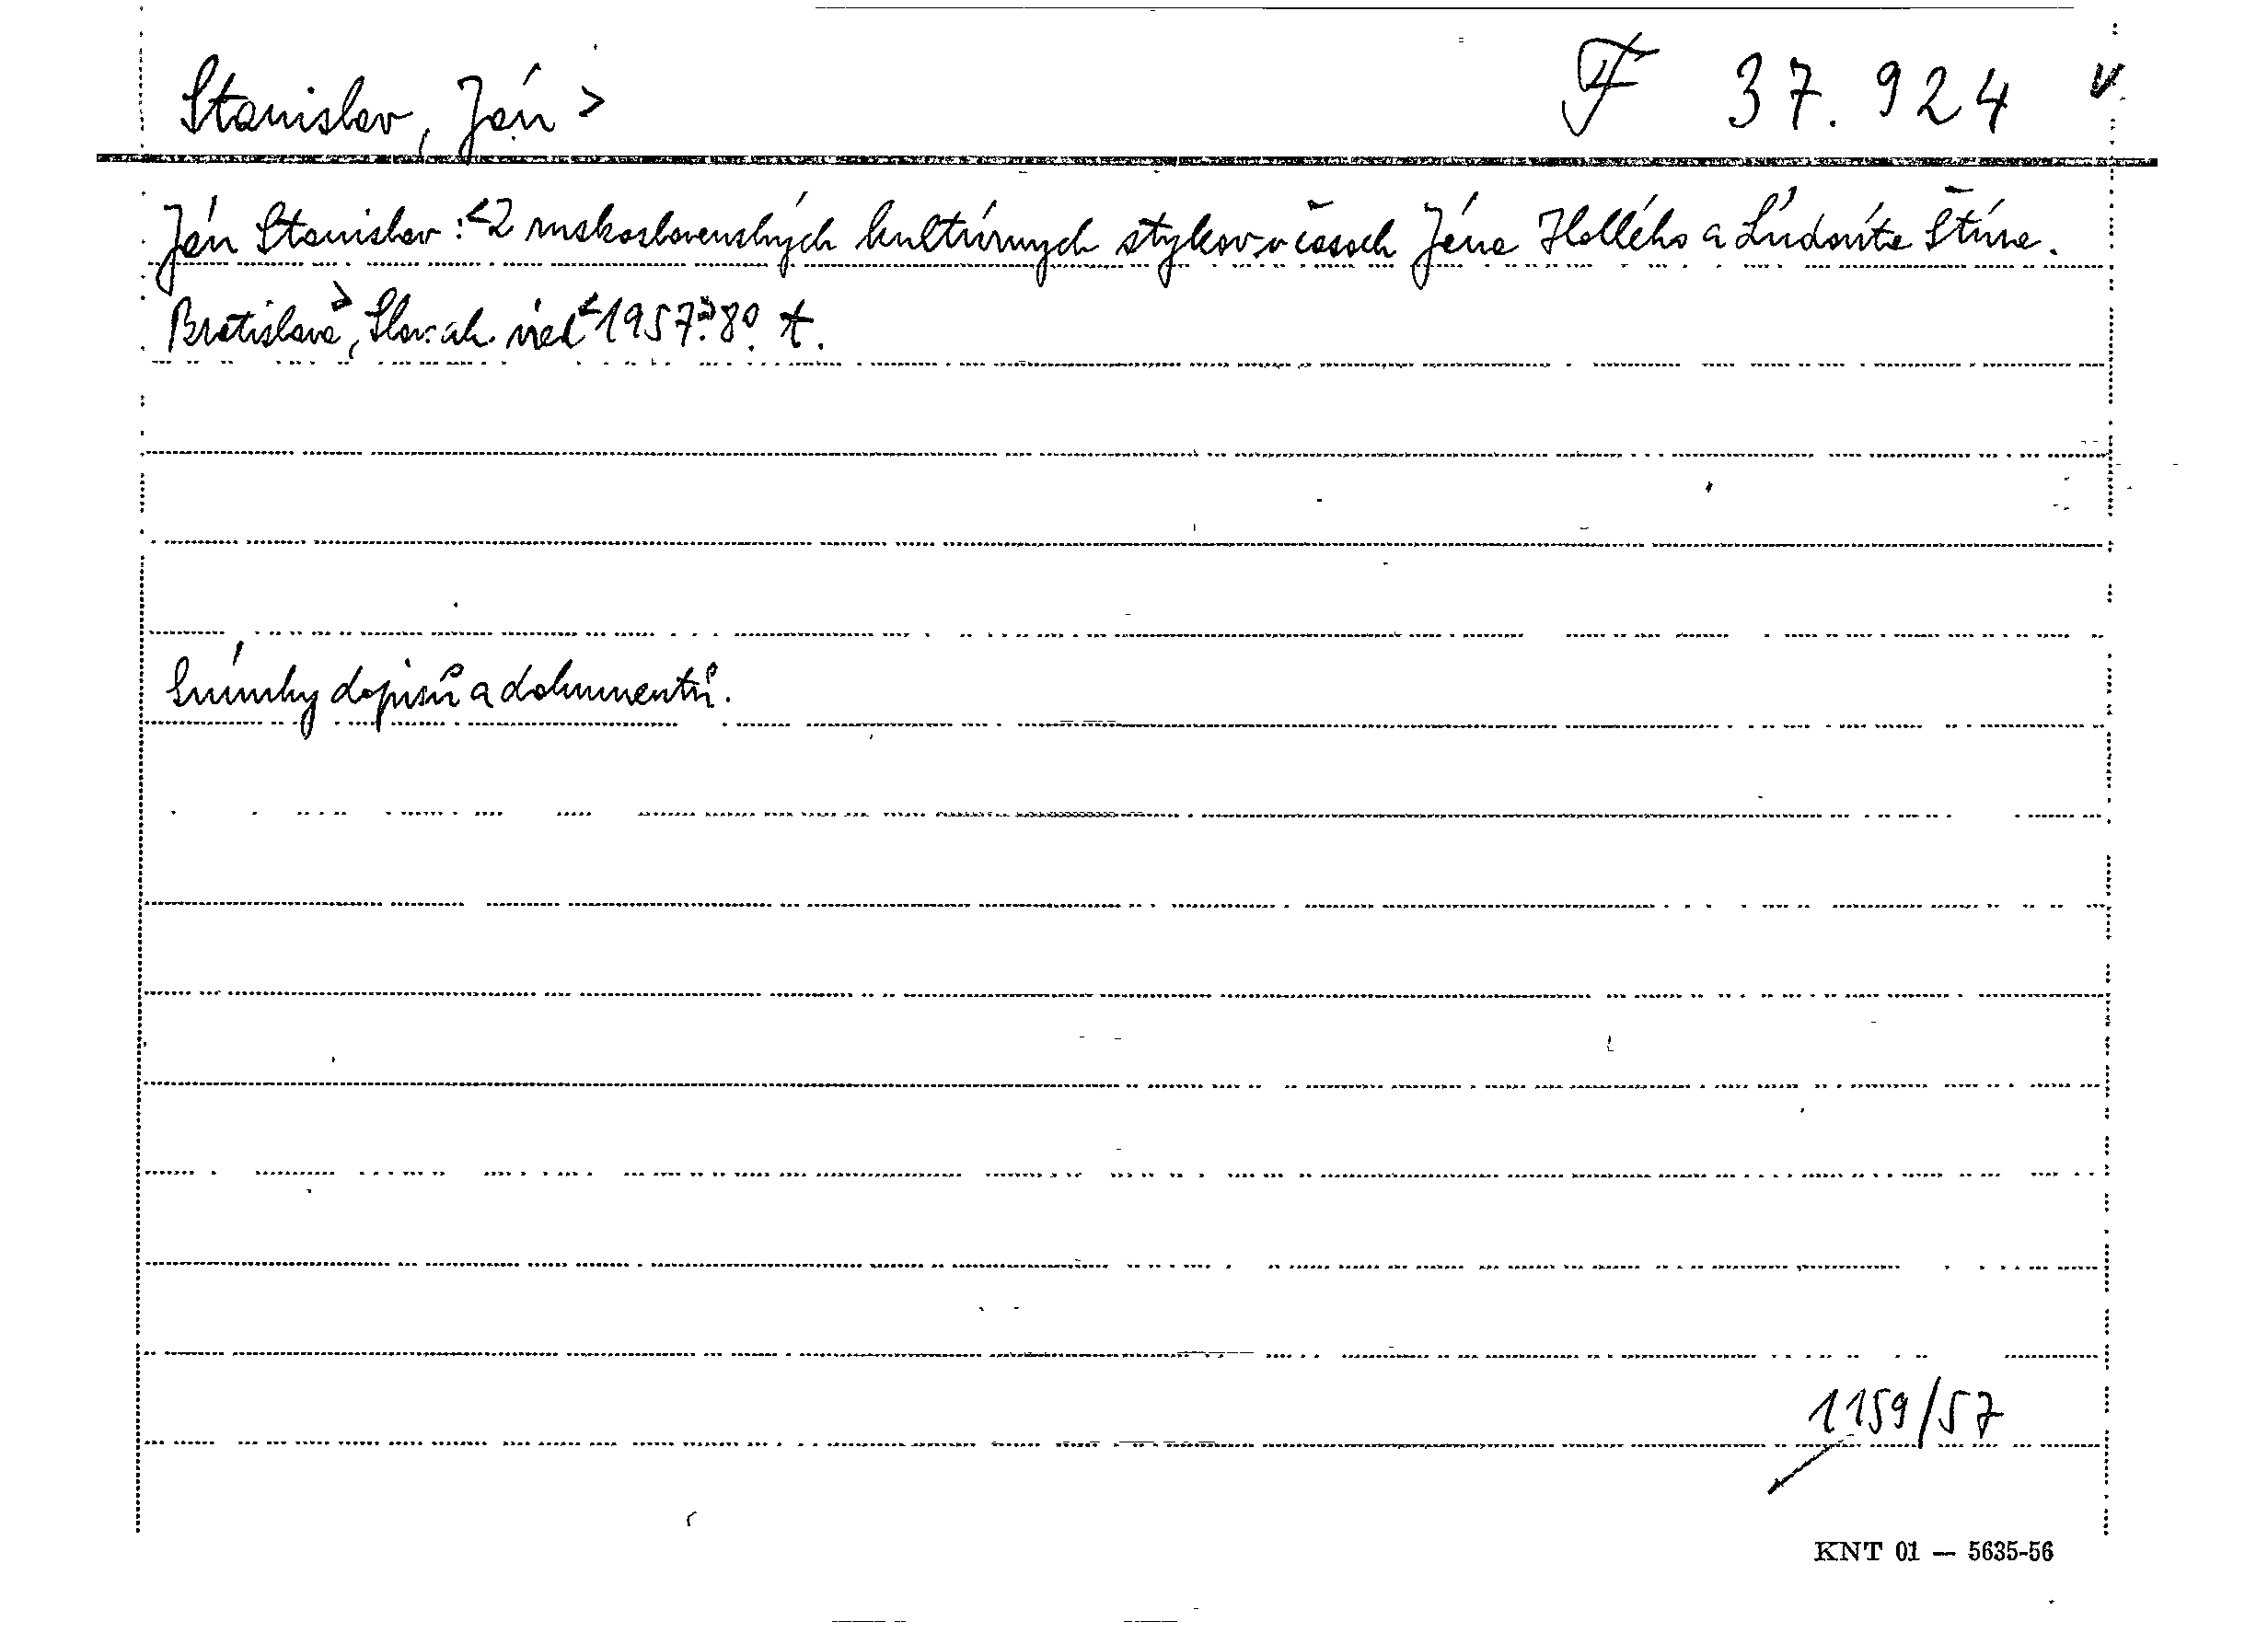 Stanislav, Ján > F 37.924 v
Ján Stanislav: <Z ruskoslovenských kultúrnych stykov v časoch Jána Hollého a Ľudovíta Štúra.
Bratislava>, Slov. ak. vied <1957.> 8°. t.
Snímky dopisů a dokumentů.
1159/57
KNT 01 — 5635-56